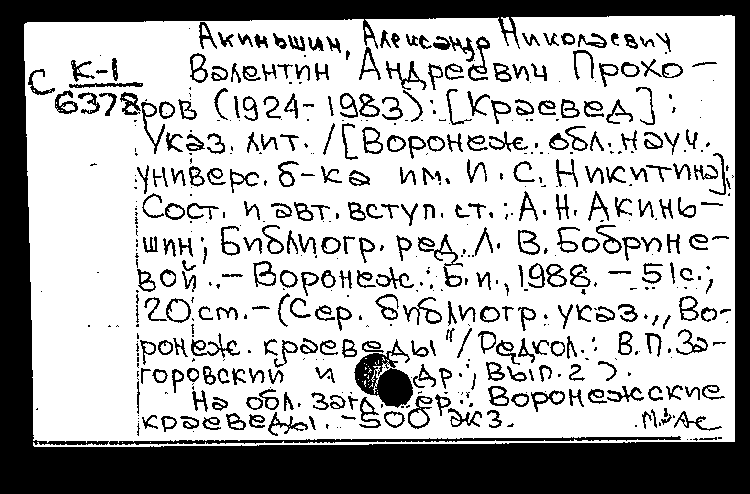 Акиньшин, Александр Николаевич
С К-1 Валентин Андреевич Прохо-
6378 ров (1924-1983): [Краевед]:
Указ. лит. / [Воронеж. обл. науч.
универс. б-ка им. И. С. Никитина];
Сост. и авт. вступ. ст.: А. Н. Акинь-
шин; Библиогр. ред. Л. В. Бобрине-
вой. - Воронеж: Б. и., 1988. - 51 с.;
20 см. - (Сер. библиогр. указ. ,,Во-
ронеж. краеведы"/Редкол.: В. П. За-
горовский и др.; Вып. 2).
На обл. загл. сер.: Воронежские
краеведы. - 500 экз.